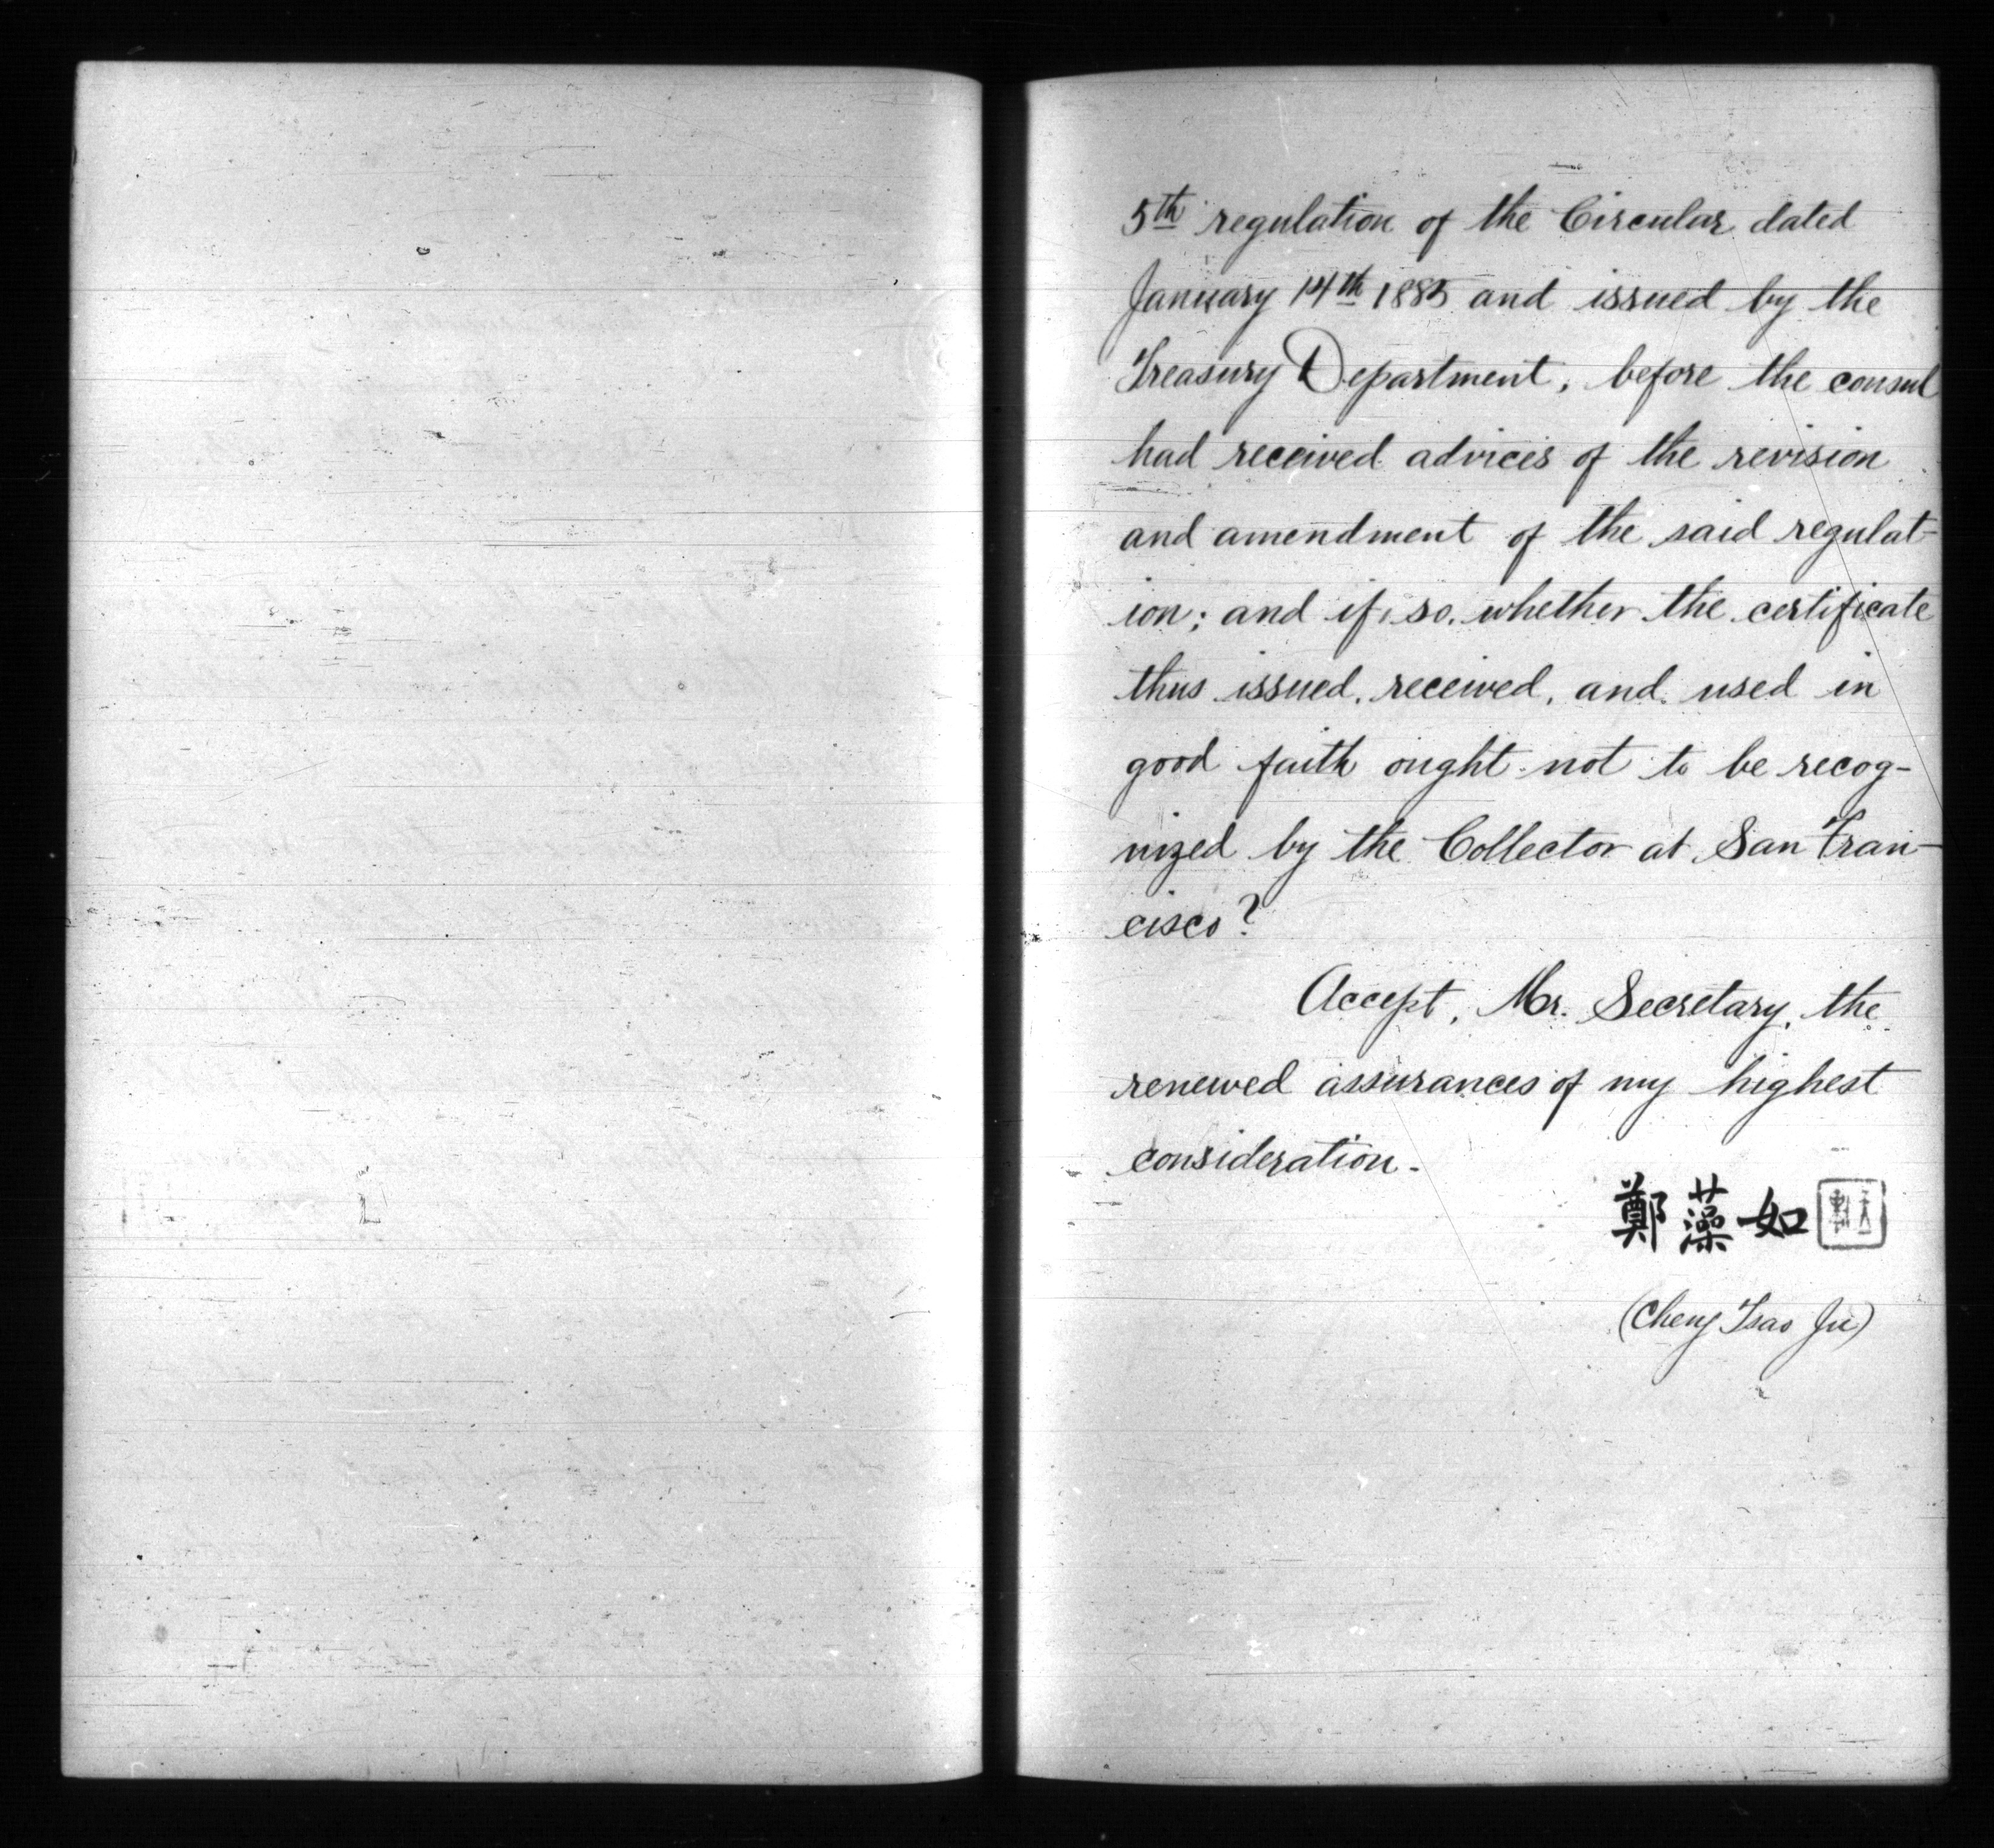 5th regulation of the Circular dated
January 14th 1885 and issued by the
Treasury Department, before the consul
had received advices of the revision
and amendment of the said regulat-
ion; and if, so, whether the certificate
thus issued, received, and used in
good faith ought not to be recog-
nized by the Collector at San Fran-
cisco?
Accept, Mr. Secretary, the
renewed assurances of my highest
consideration.
鄭藻如
(Cheng Tsao Ju)